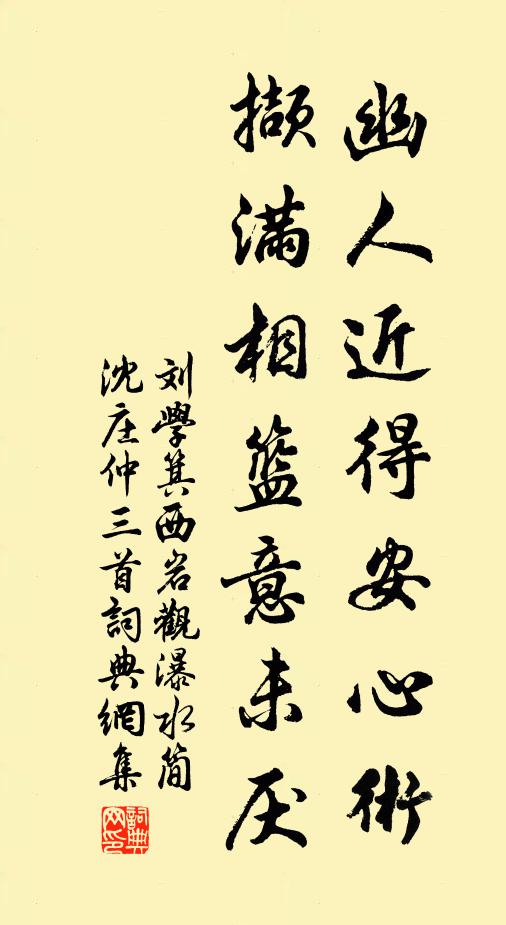 幽人近得安心術
擷满相籃意未厌
刘學箕西岩觀瀑水簡
沈庄仲三首詞典網集
詞典網印